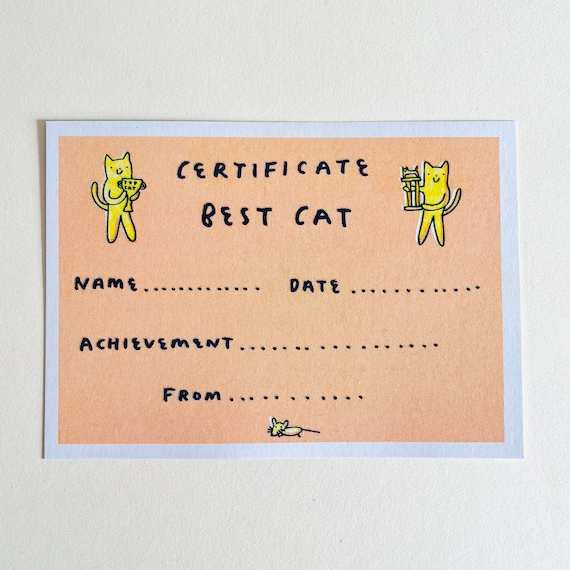 CERTIFICATE
BEST CAT
NAME............. DATE ............
ACHIEVEMENT.................
FROM...........